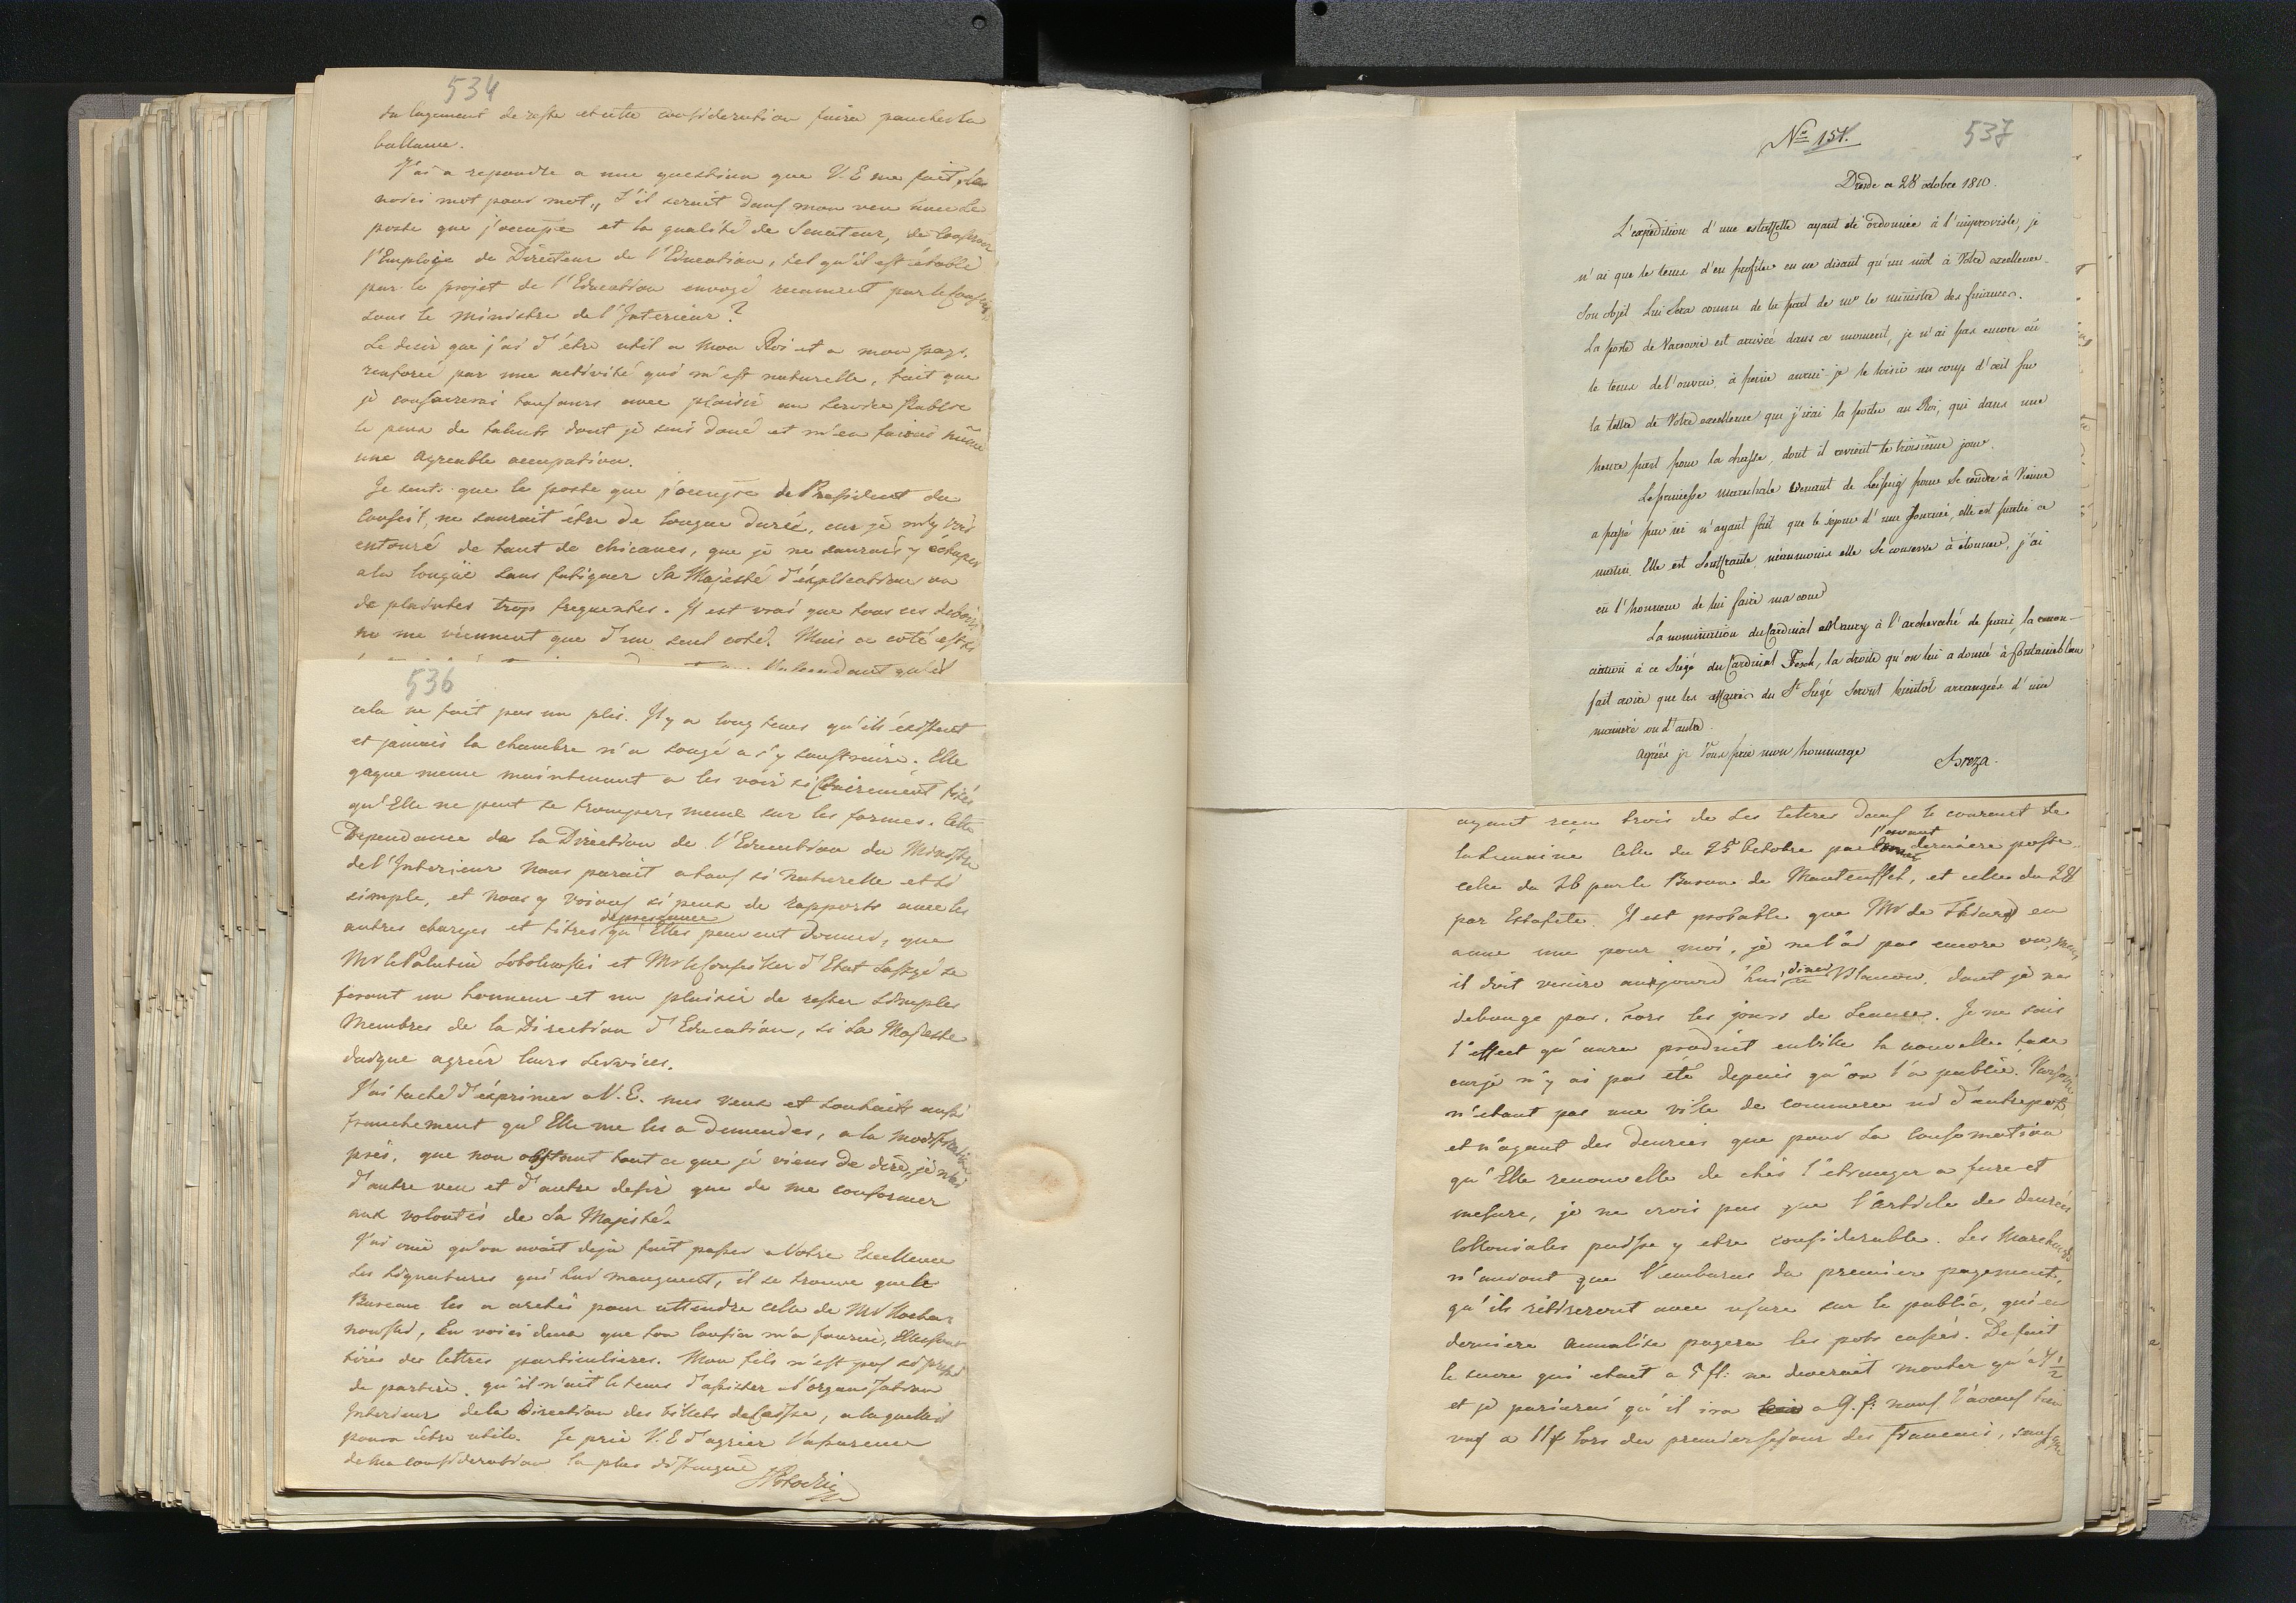 534
du lugement de reste et cette consideration faira pancher la
ballance.
J'ai a repondre a une question que V.E me fait, la
voici mot pour mot, S'il serait dans mon veu avec le
poste que j'occupe et la qualité de Senateur, de conserver
l'Emploie de Directeur de l'Education, tel qu'il est établi
par le projet de l'Education envoyé recament par le Conseil
sous le Ministre de l'Interieur?
Le desir que j'ai d'être util a mon Roi et a mon pays,
renforcé par une activité qui m'est naturelle, fait que
je consacrerai toujours avec plaisir au service Public
le peux de talents dont je suis doué et m'en fairai même
une agreable occupation.
Je sents que le poste que j'occupe de President du
Conseil, ne saurait être de longue durée, car je m'y vois
entouré de tant de chicanes, que je ne saurais y échaper
a la longue sans fatiguer Sa Majesté d'explications ou
de plaintes trop frequentes. Il est vrai que tous ces deboirs
ne me viennent que d'un seul coté. Mais ce coté est
536
cela ne fait pas un plis. Il y a long tems qu'ils éxistent
et jamais la chambre n'a songé a s'y soustraire. Elle
gagne meme maintenant a les voir si clairement fixés
qu'Elle ne peut se tromper, meme sur les formes. Cette
Dependance de la Direction de l'Education du Ministre
de l'Interieur nous parait a tous si naturelle et si
simple, et nous y voions si peux de rapports avec les
autres charges et titres qu'Elles peuvent donner, que
Mr le Palatin Sobolewski et Mr le Conseiller d'Etat Staszyc se
feront un honneur et un plaisir de rester simples
Membres de la Direction d'Education, si Sa Majesté
daigne agréér leurs services.
J'ai taché d'éxprimer a V.E. mes veux et souhaits aussi
franchement qu'Elle me les a demendés, a la modification
prés, que non obstant tout ce que je viens de dire, je n'ai
d'autre veu et d'autre desir que de me conformer
aux volontés de Sa Majesté.
J'ai crue qu'on avait deja fait passer a Votre Excellence
les signatures qui lui manquent, il se trouve que le
Bureau les a aretés pour attendre celle de Mr Kocha-
nowski, En voici deux que son Cousin m'a fournie, Elles sont
tirés des lettres particulieres. Mon fils n'est pas si pressé
de partire, qu'il n'ait le tems d'assister a l'organisation
Interieur de la Direction des billets de Caisse, a laquelle il
poura être utile. Je prie V.E d'agréer l'assurence
de ma consideration la plus distinguée
SPotocki
No 151.
537
Dresde ce 28 octobre 1810.
L'expédition d'une estaffette ayant été ordonnée à l'improviste, je
n'ai que le tems d'en profiter en ne disant qu'un mot à Votre excellence.
Son objet lui sera connu de la part de mr le ministre des finances.
La poste de Varsovie est arrivée dans ce moment, je n'ai pas encore eû
le tems de l'ouvrir, à peine aurai-je le loisir un coup d'œil sur
la lettre de Votre excellence que j'irai la porter au Roi, qui dans une
heure part pour la chasse, dont il revient le troisième jour.
La princesse marechale venant de Leipsig pour se rendre à Vienne
a passé par ici n'ayant fait que le séjour d'une journée, elle est partie ce
matin. Elle est souffrante, néanmoins elle se conserve à étonner, j'ai
eû l'honneur de lui faire ma cour
La nomination du Cardinal Maury à l'archevéché de paris, la renon-
ciation à ce siége du Cardinal Fesch, la droite qu'on lui a donné à fontainebleau
fait croire que les affaires du St Siége seront bientôt arrangées d'une
manière ou d'autre.
agréés je Vous prie mon hommage
Breza.
ayant reçu trois de ses lettres dans le courent de
la semaine Celle du 25 Octobre par l'avant derniere poste,
celle du 26 par le Baron de Manteuffel, et celle du 28
par Estafete. Il est probable que Mr de Thiard en
aura une pour moi, je ne l'ai pas encore vu, mais
il doit venire aujourd'hui diner a Vilanow, dont je ne
debouge pas, hors les jours de Seance. Je ne sais
l'effect qu'aura produit en ville la nouvelle taxe
car je n'y ai pas été depuis qu'on l'a publié. Varsovie
n'étant pas une ville de commerce ni d'antrepot,
et n'ayant des denrées que pour sa consomation
qu'Elle renouvelle de chés l'étranger a fure et
mesure, je ne crois pas que l'article des denrées
Colloniales puisse y etre considerable. Les Marchands
n'auront que l'embaras du premier payement,
qu'ils retireront avec usure sur le public, qui en
derniere annalise payera les pots cassés. De fait
le sucre qui etait a 5 fl: ne deverait monter qu'a 7 1/2
et je parierai qu'il ira a 9. f: nous l'avons bien
vus a 11 f lors du premier sejour des francais, sans que